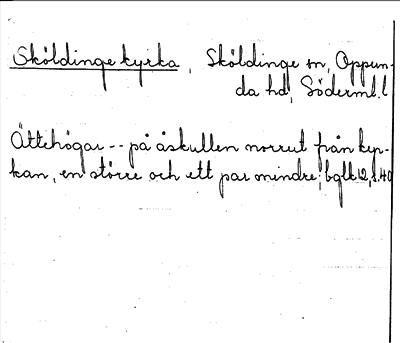 Sköldinge kyrka, Sköldinge sn, Oppun-
da hd, Söderml. l
Ättehögar -- på åskullen norrut från kyr-
kan, en större och ett par mindre, bglk 12, s. 40